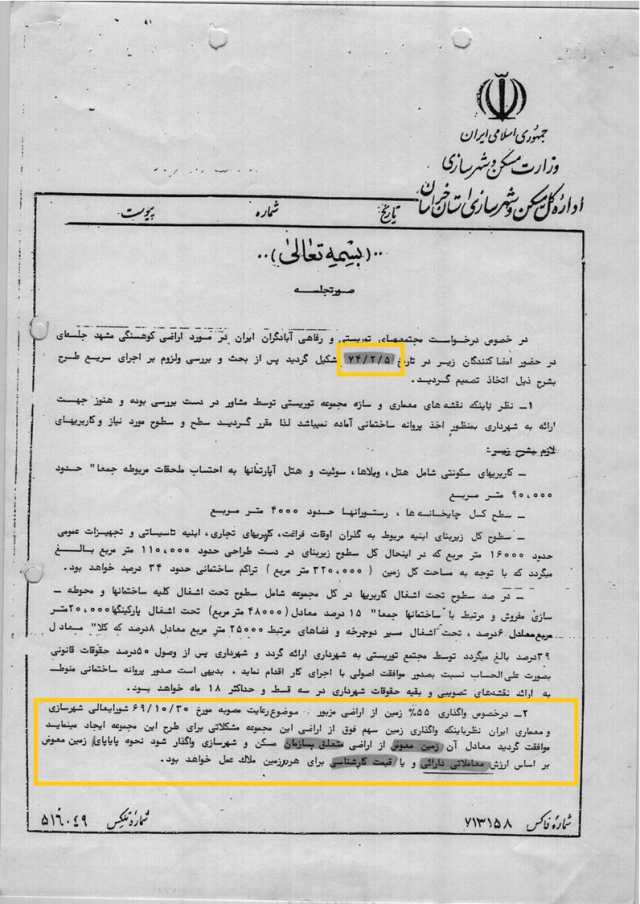 جمهوری اسلامی ایران
وزارت مسکن و شهرسازی
اداره کل مسکن و شهرسازی استان خراسان
تاریخ شماره پیوست
..(بسمه تعالی)..
صورتجلسه
در خصوص درخواست مجتمعهای توریستی و رفاهی آبادگران ایران در مورد اراضی کوهسنگی مشهد جلسه‌ای
در حضور امضا کنندگان زیر در تاریخ ۷۴/۲/۵ تشکیل گردید پس از بحث و بررسی ولزوم بر اجرای سریع طرح
بشرح ذیل اتخاذ تصمیم گردید.
۱ـ نظر باینکه نقشه های معماری و سازه مجموعه توریستی توسط مشاور در دست بررسی بوده و هنوز جهت
ارائه به شهرداری بمنظور اخذ پروانه ساختمانی آماده نمیباشد لذا مقرر گردید سطح و سطوح مورد نیاز و کاربریهای
لازم بشرح زیر:
ـ کاربریهای سکونتی شامل هتل، ویلاها، سوئیت و هتل آپارتمانها به احتساب ملحقات مربوطه جمعا" حدود
۹۰،۰۰۰ متر مربع
ـ سطح کل چایخانه‌ها، رستورانها حدود ۴۰۰۰ متر مربع
ـ سطوح کل زیربنای ابنیه مربوط به گذران اوقات فراغت، کاربریهای تجاری، ابنیه تاسیساتی و تجهیزات عمومی
حدود ۱۶۰۰۰ متر مربع که در اینحال کل سطوح زیربنای در دست طراحی حدود ۱۱۰،۰۰۰ متر مربع بالغ
میگردد که با توجه به مساحت کل زمین (۳۲۰،۰۰۰ متر مربع) تراکم ساختمانی حدود ۳۴ درصد خواهد بود.
ـ در صد سطوح تحت اشغال کاربریها در کل مجموعه شامل سطوح تحت اشغال کلیه ساختمانها و محوطه ـ
سازی مفروش و مرتبط با ساختمانها جمعا" ۱۵ درصد معادل (۴۸۰۰۰ متر مربع) تحت اشغال پارکینگها ۲۰،۰۰۰متر
مربع معادل ۶درصد، تحت اشغال مسیر دوچرخه و فضاهای مرتبط ۲۵۰۰۰ متر مربع معادل ۸درصد که کلا" معادل
۳۹درصد بالغ میگردد توسط مجتمع توریستی به شهرداری ارائه گردد و شهرداری پس از وصول ۵۰درصد حقوقات قانونی
بصورت علی الحساب نسبت بصدور موافقت اصولی با اجرای کار اقدام نماید، بدیهی است صدور پروانه ساختمانی منوط ـ
به ارائه نقشه‌های تصویبی و بقیه حقوقات شهرداری در سه قسط و حداکثر ۱۸ ماه خواهد بود.
۲ـ درخصوص واگذاری ۵۵% زمین از اراضی مزبور موضوع رعایت مصوبه مورخ ۶۹/۱۰/۳۰ شورایعالی شهرسازی
و معماری ایران نظرباینکه واگذاری زمین سهم فوق از اراضی این مجموعه مشکلاتی برای طرح این مجموعه ایجاد مینماید
موافقت گردید معادل آن زمین معوض از اراضی متعلق بسازمان مسکن و شهرسازی واگذار شود نحوه پایاپای زمین معوض
بر اساس ارزش معاملاتی دارائی و یا قیمت کارشناسی برای هردوزمین ملاک عمل خواهد بود.
شماره فاکس ۷۱۳۱۵۸ شماره تلکس ۵۱۶۰۴۹